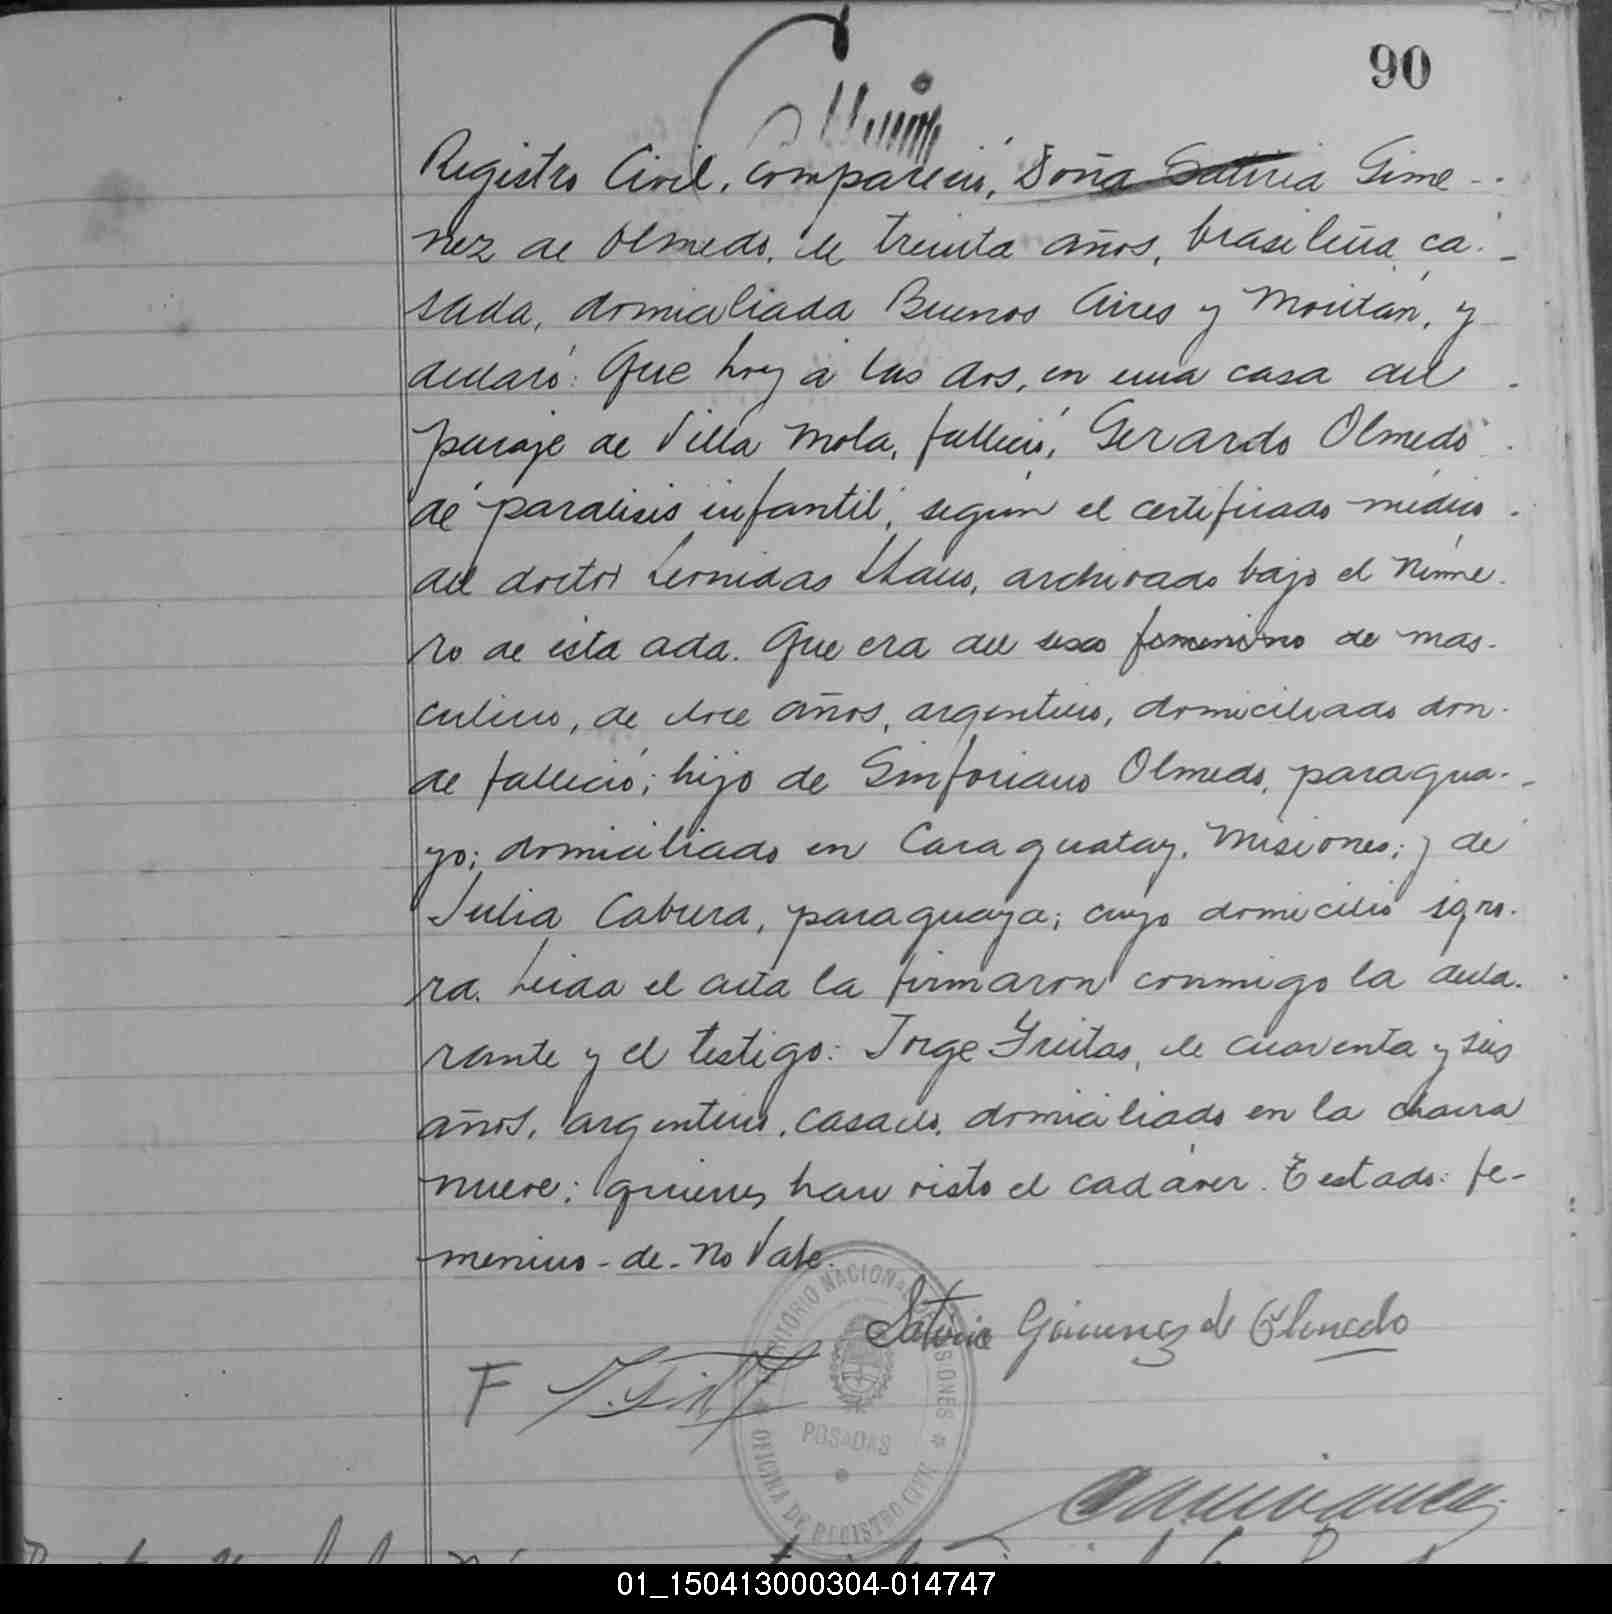 90
Registro Civil, compareció, Doña Saturia Gime-
nez de Olmedo, de treinta años, brasileña, ca-
sada, domiciliada Buenos Aires y Moritán, y
declaró: Que hoy á las dos, en una casa del
paraje de Villa Mola, falleció, Gerardo Olmedo
de parálisis infantil, según el certificado médico
del doctor Leonidas archivado bajo el núme-
ro de esta acta. Que era del sexo femenino de mas-
culino, de doce años, argentino, domiciliado don-
de falleció; hijo de Sinforiano Olmedo, paragua-
yo; domiciliado en Caraguatay, Misiones; y de
Julia Cabrera, paraguaya; cuyo domicilio igno-
ra. Leida el acta la firmaron conmigo la decla-
rante y el testigo: Jorge Freitas, de cuarenta y seis
años, argentino, casado, domiciliado en la chacra
nueve; quienes han visto el cadáver. Testado: fe-
menino - de - no Vale.
Saturia Gimenez de Olmedo
TERRITORIO NACIONAL DE MISIONES
POSADAS
OFICINA DE REGISTRO CIVIL
01_150413000304-014747